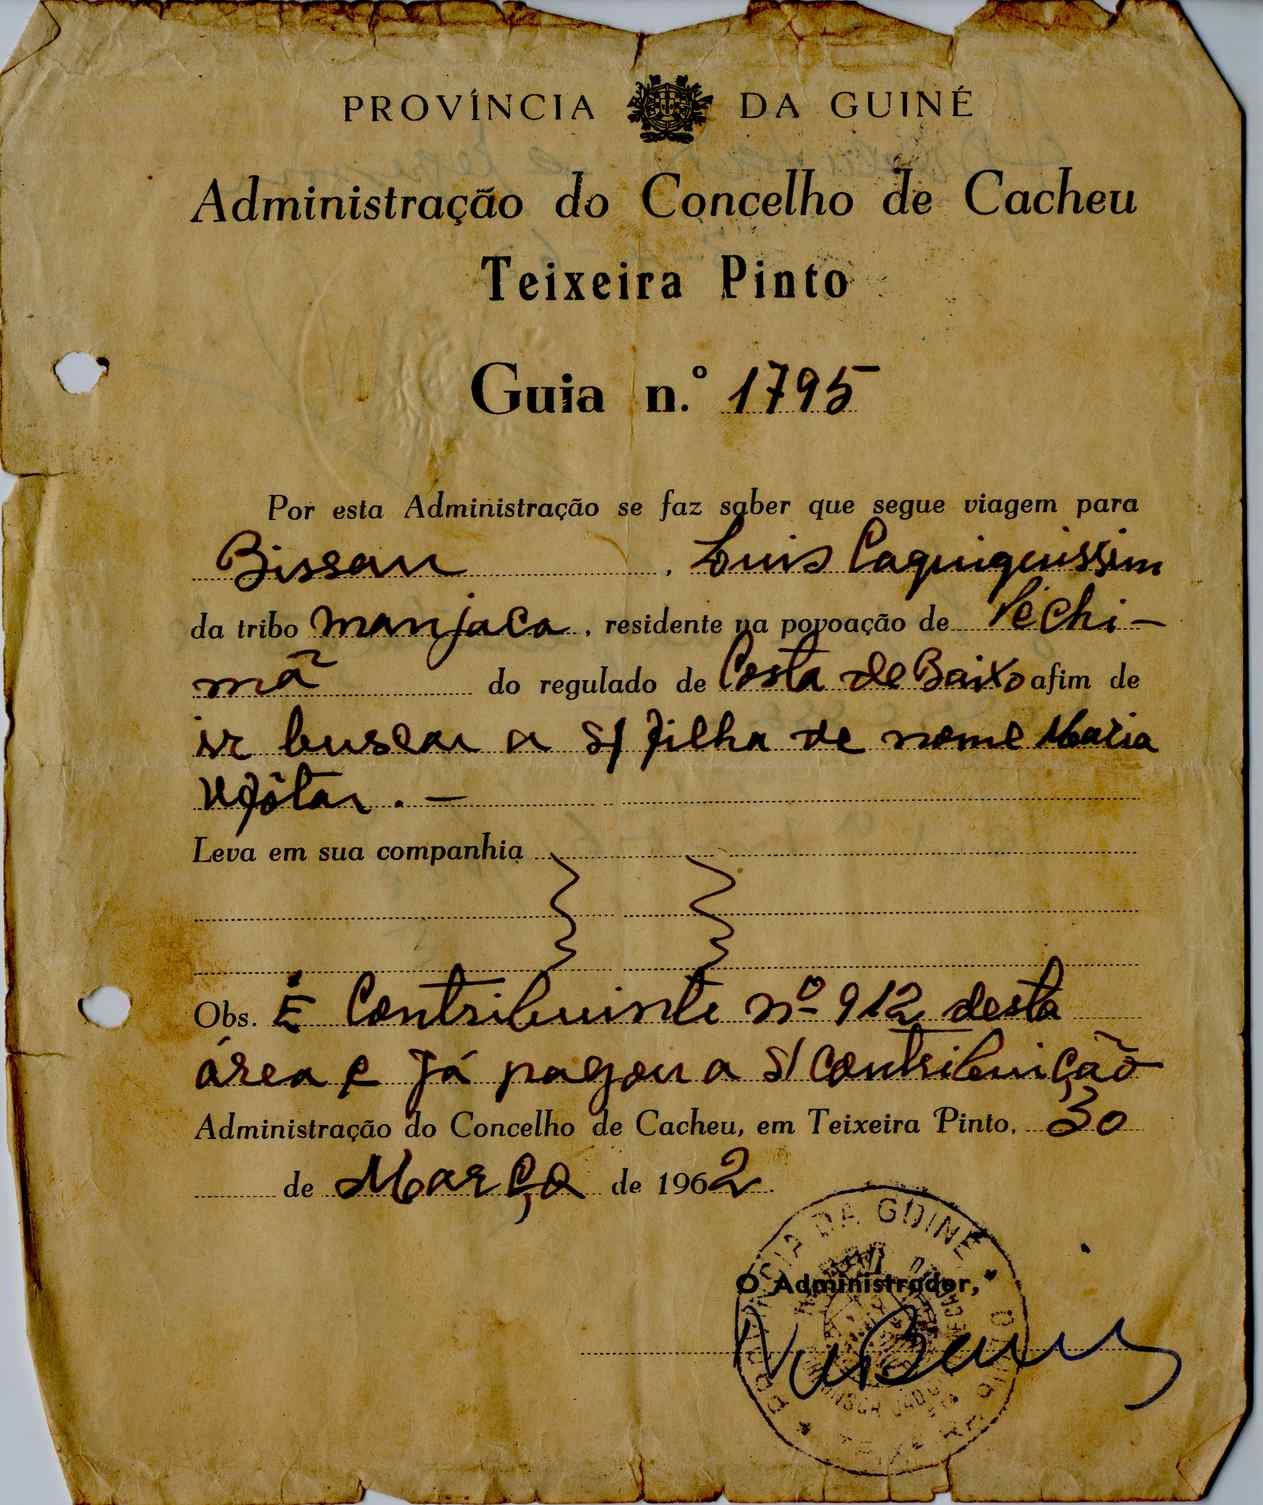 PROVÍNCIA DA GUINÉ
Administração do Concelho de Cacheu
Teixeira Pinto
Guia n.º 1795
Por esta Administração se faz saber que segue viagem para
Bissau, Luis Caquiguissim
da tribo manjaca, residente na povoação de Péchi-
mã do regulado de Costa de Baixo afim de
ir buscar a s/ filha de nome Maria
Leva em sua companhia
Obs. É Contribuinte nº 912 desta
área e já pagou a s/ contribuição
Administração do Concelho de Cacheu, em Teixeira Pinto, 30
de Março de 1962
PROVÍNCIA DA GUINÉ
O Administrador,